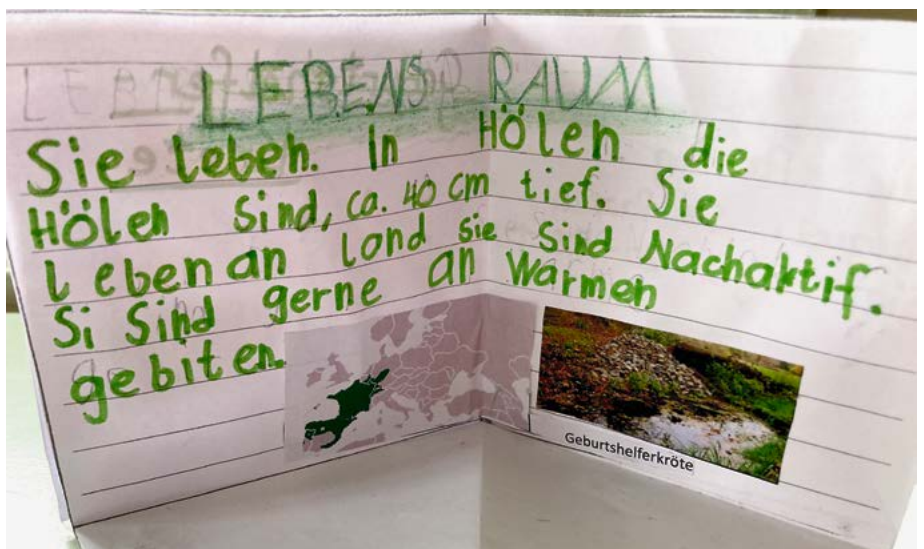 LEBENSRAUM
Sie leben. In Hölen die
Hölen sind, ca. 40 cm tief. Sie
leben an land sie sind Nachaktif.
Si Sind gerne an Warmen
gebiten.
Geburtshelferkröte